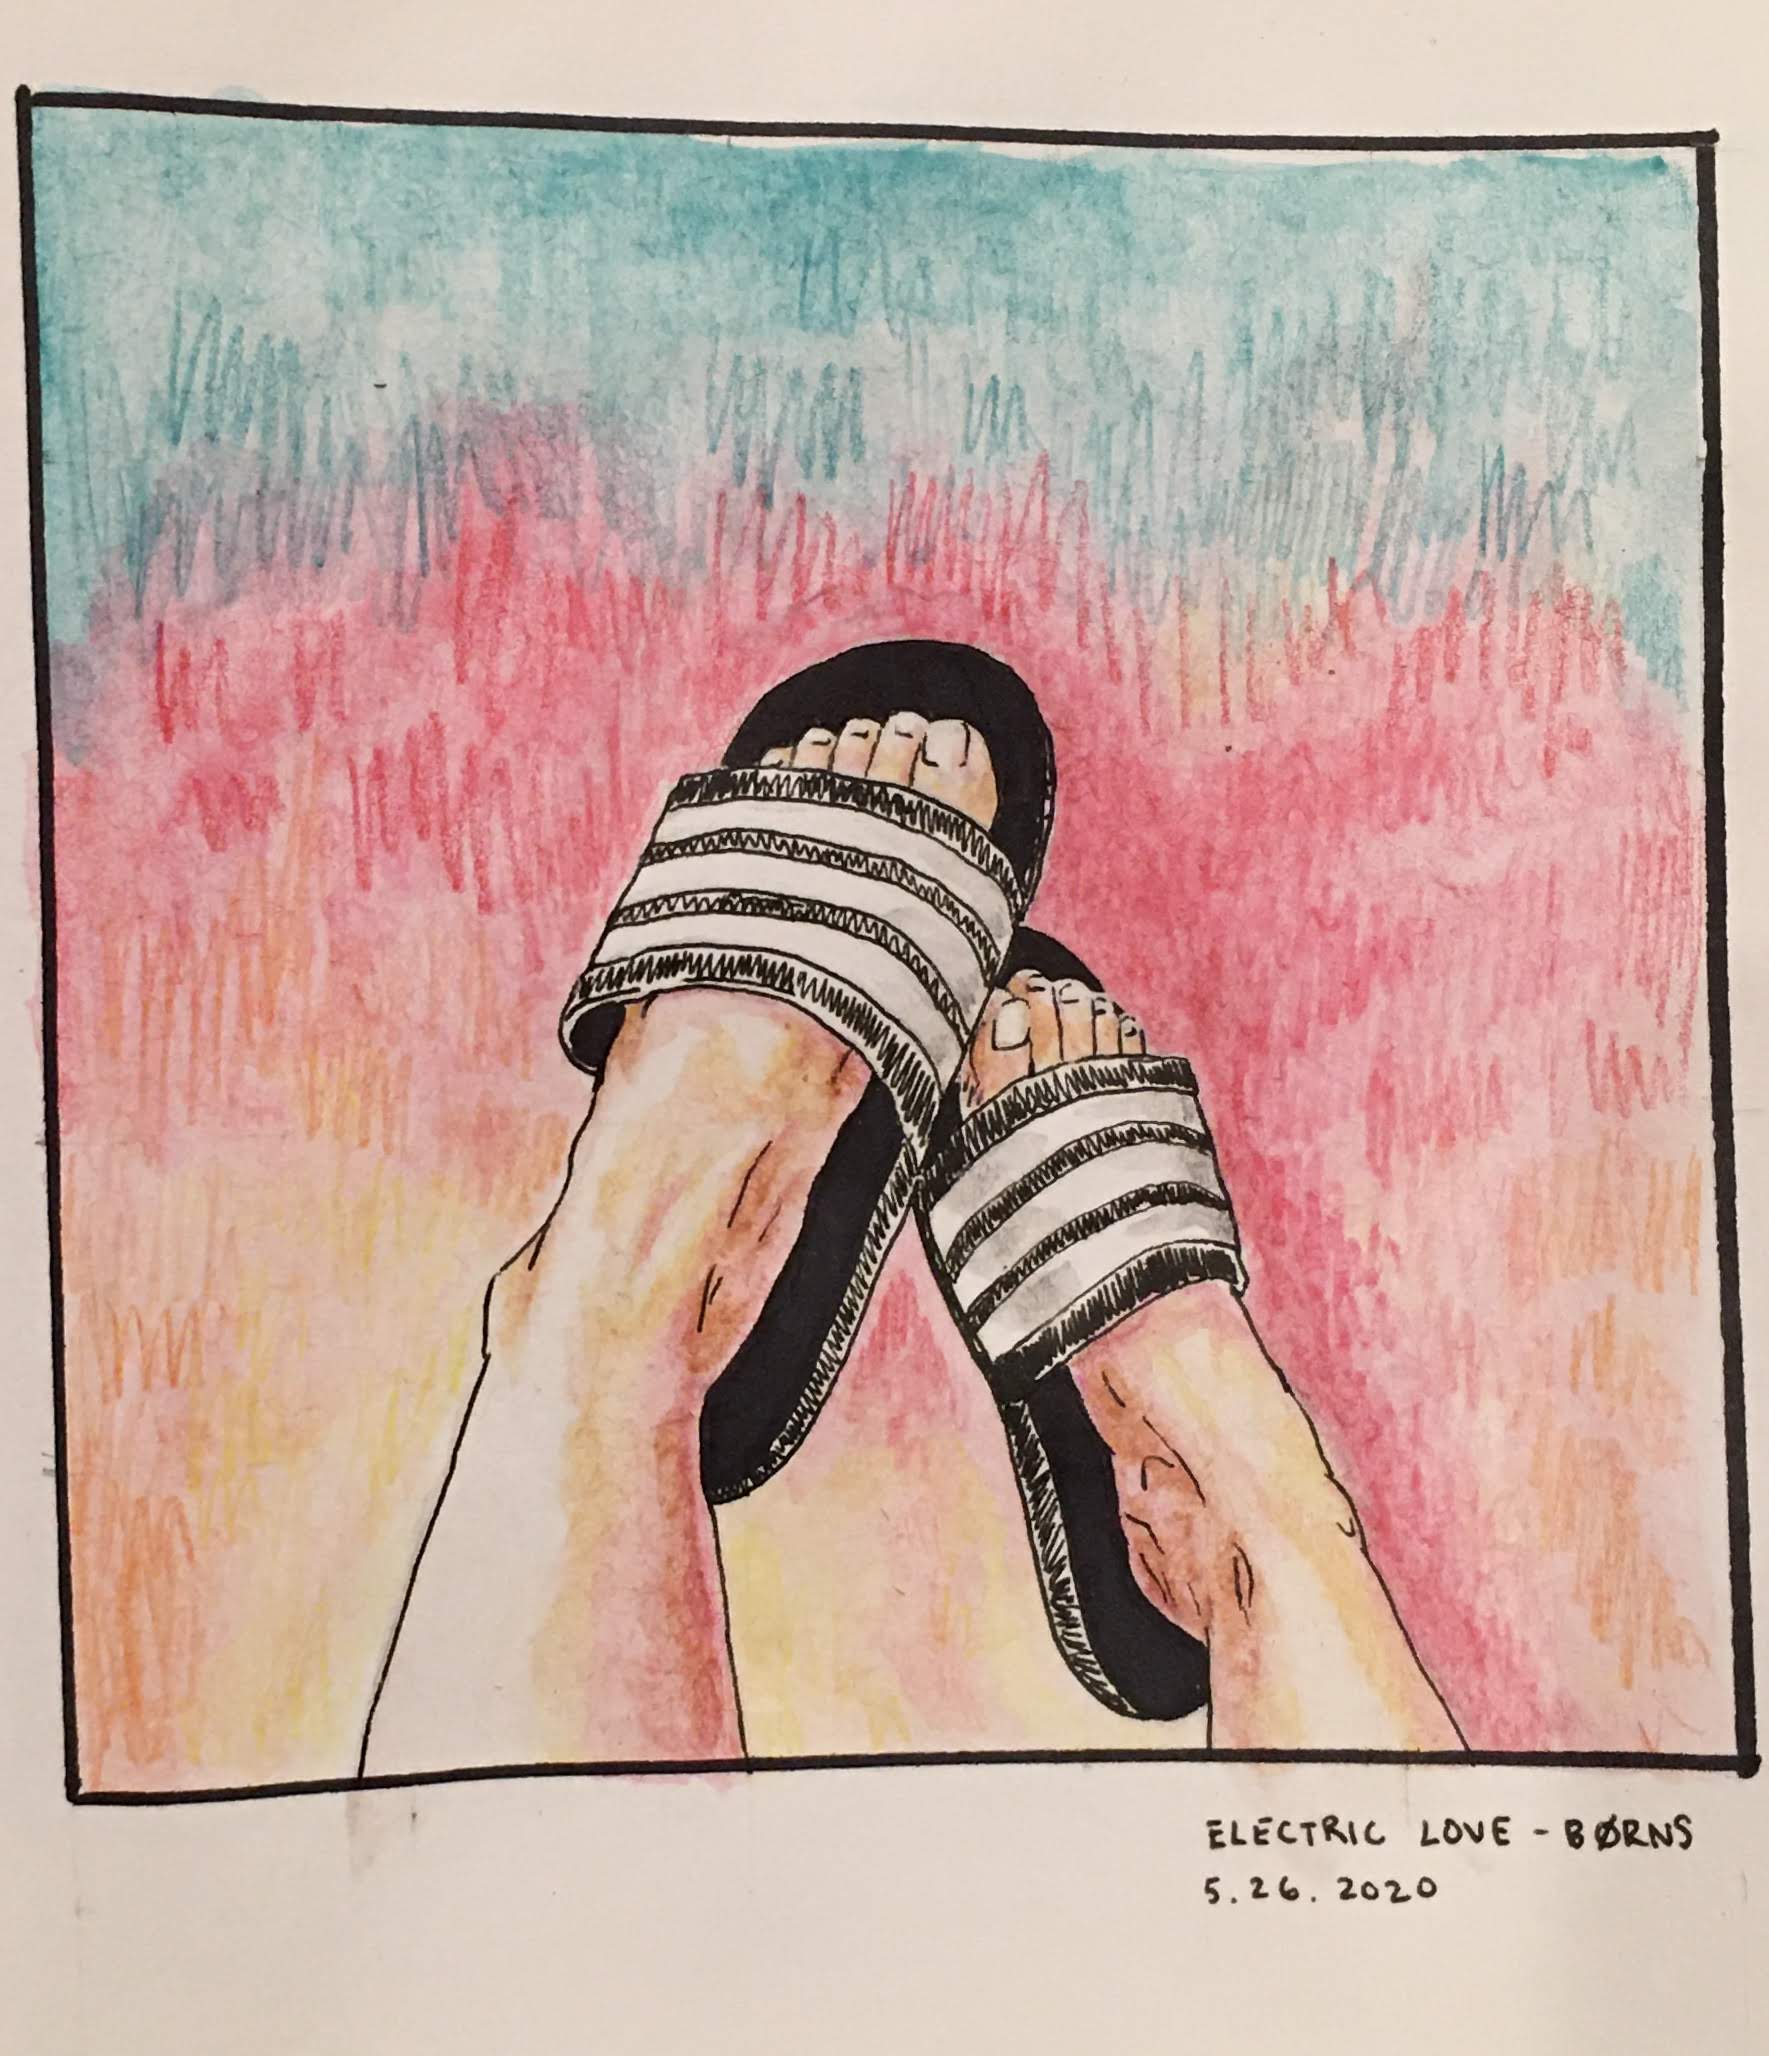 ELECTRIC LOVE - BØRNS
5.26.2020